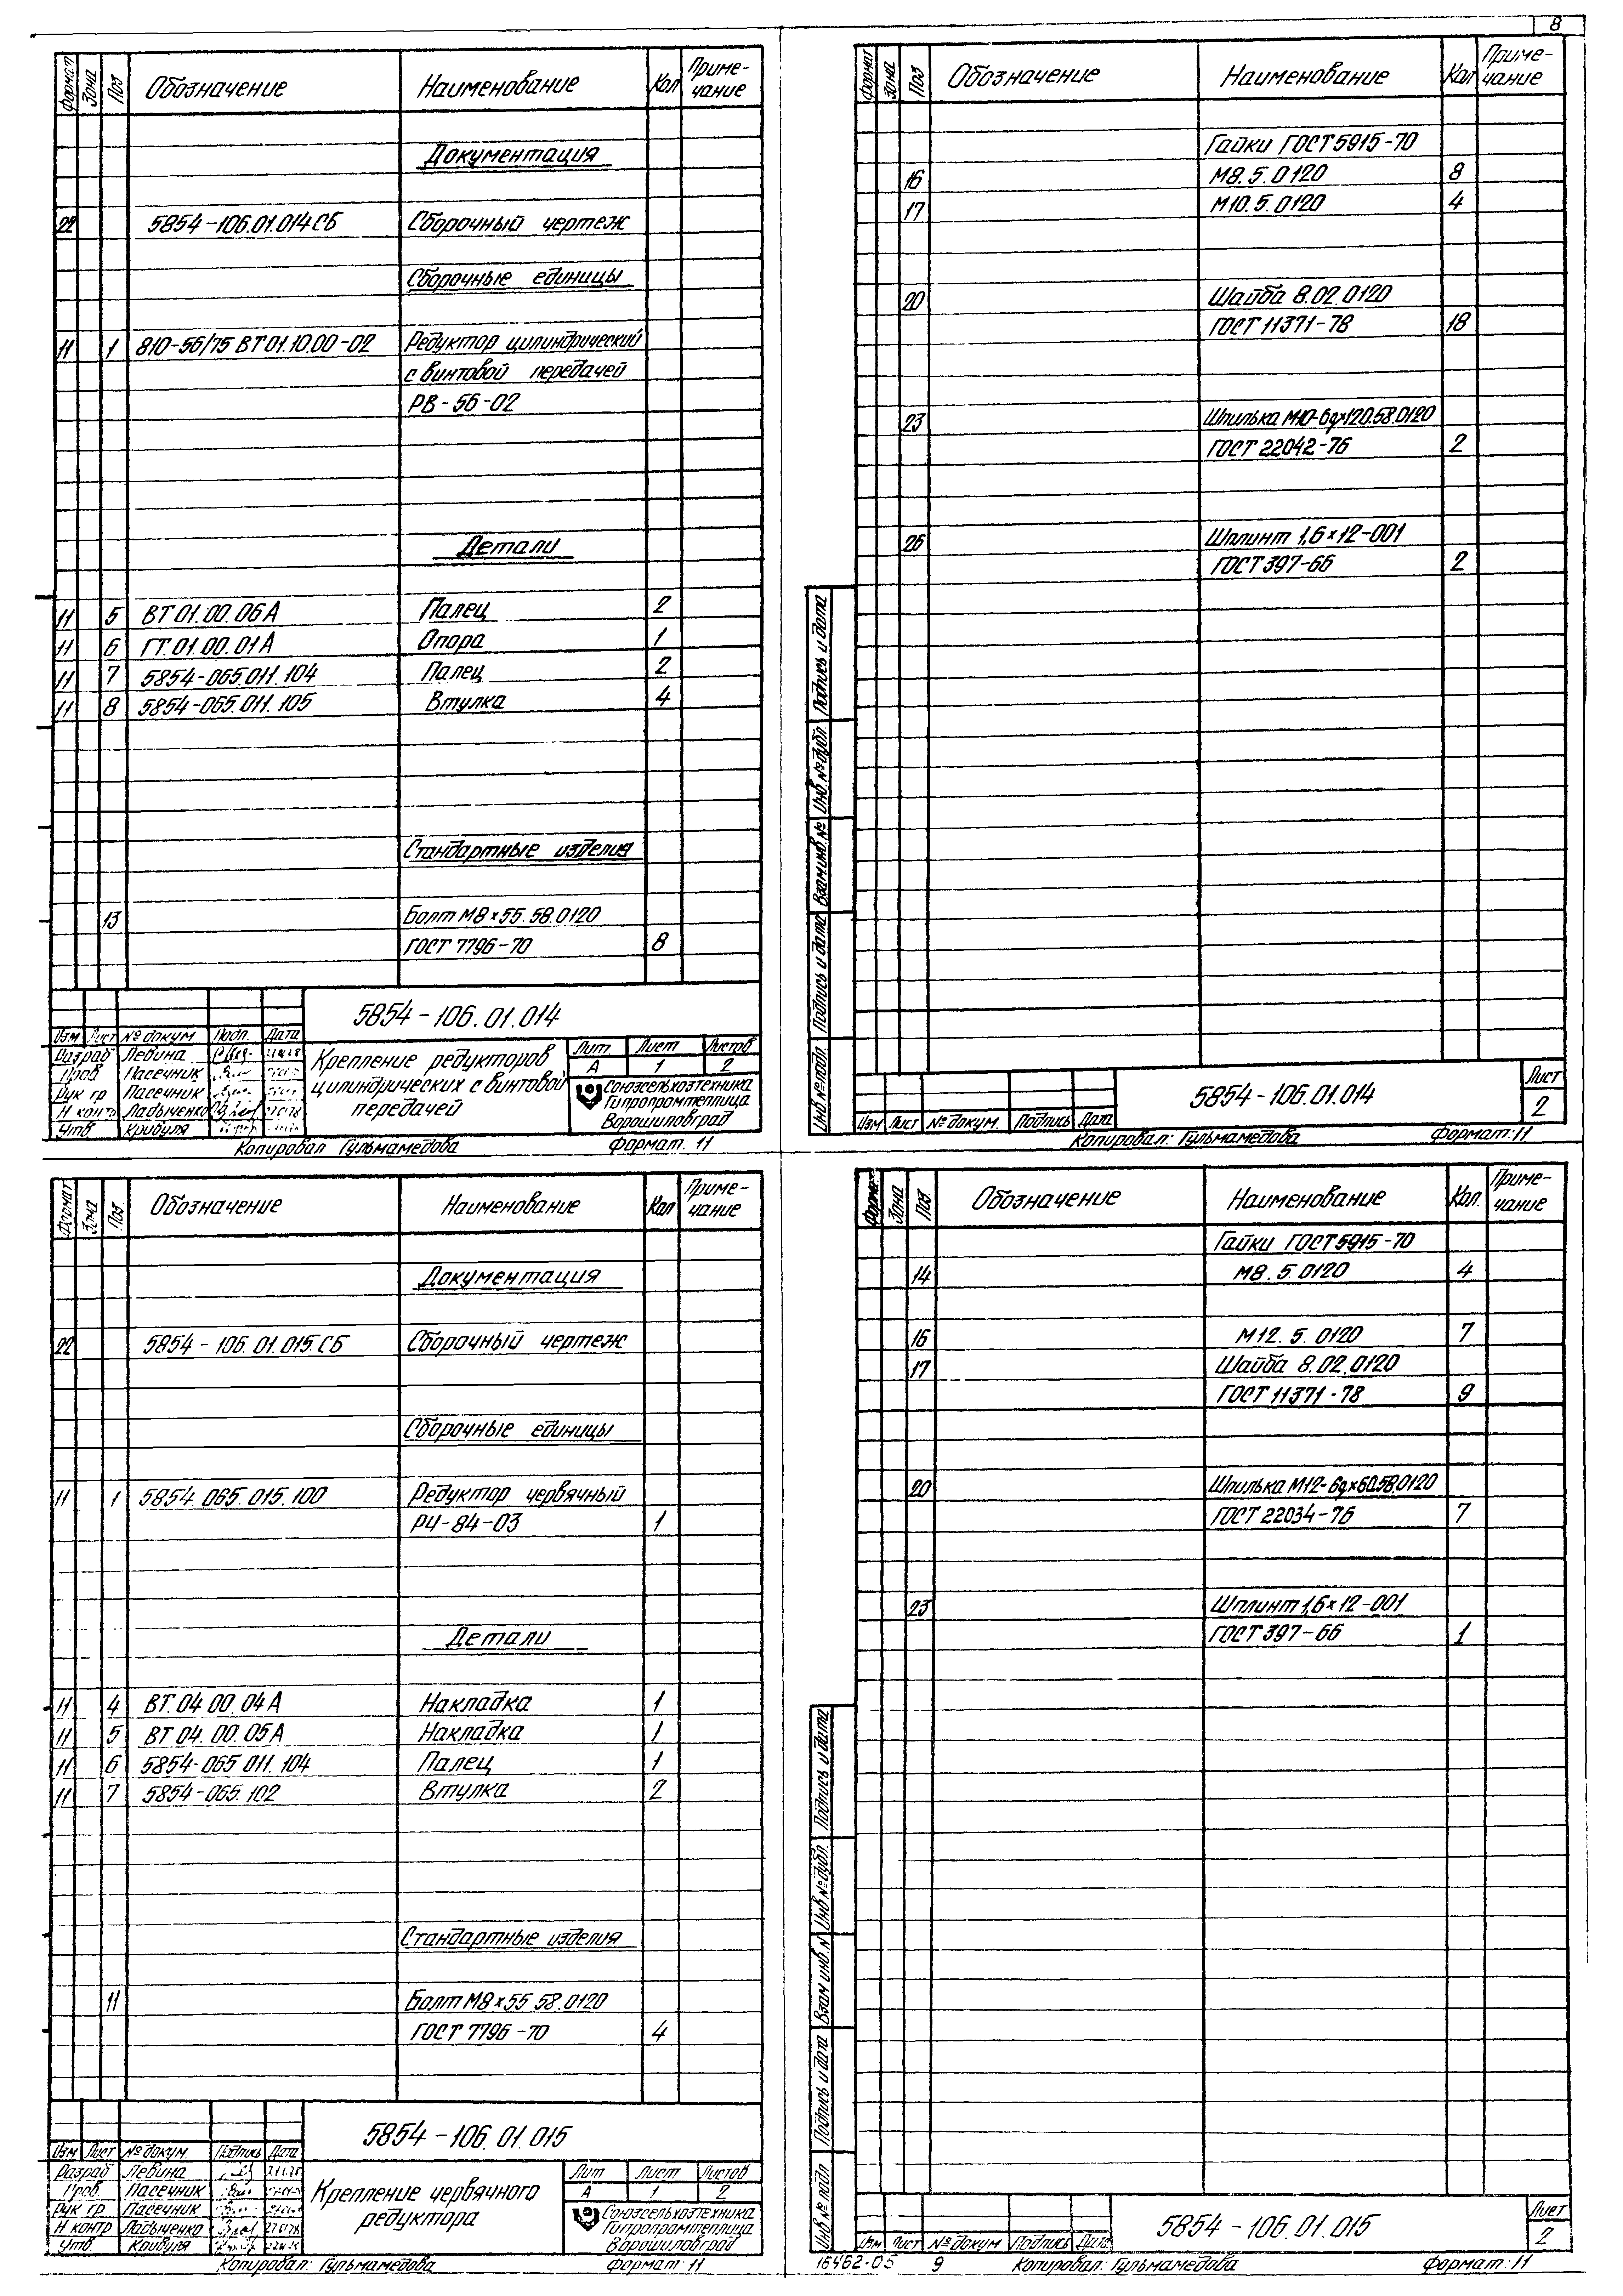 8
Формат Зона Поз Обозначение Наименование Кол Приме-чание
Документация
22 5854-106.01.014СБ Сборочный чертеж
Сборочные единицы
11 1 810-56/75 ВТ 01.10.00-02 Редуктор цилиндрический
с винтовой передачей
РВ-56-02
Детали
11 5 ВТ 01.00.06А Палец 2
11 6 ГТ.01.00.01А Опора 1
11 7 5854-065.011.104 Палец 2
11 8 5854-065.011.105 Втулка 4
Стандартные изделия
13 Болт М8×55.58.0120
ГОСТ 7796-70 8
5854-106.01.014
Изм Лист № докум Подп. Дата
Разраб Левина
Пров Пасечник
Рук гр Пасечник
Н контр Ладыченко
Утв Крибуля
Крепление редукторов
цилиндрических с винтовой
передачей
Лит Лист Листов
А 1 2
Союзсельхозтехника
Гипропромтеплица
Ворошиловград
Копировал Гульмамедова Формат: 11
Формат Зона Поз Обозначение Наименование Кол Приме-чание
Гайки ГОСТ 5915-70
16 М8.5.0120 8
17 М10.5.0120 4
20 Шайба 8.02.0120
ГОСТ 11371-78 18
23 Шпилька М10-6g×120.58.0120
ГОСТ 22042-76 2
26 Шплинт 1,6×12-001
ГОСТ 397-66 2
Инв № подл. Подпись и дата Взам.инв.№ Инв.№ дубл. Подпись и дата
Изм Лист № докум. Подпись Дата
5854-106.01.014
Лист
2
Копировал: Гульмамедова Формат: 11
Формат Зона Поз. Обозначение Наименование Кол Приме-чание
Документация
22 5854-106.01.015.СБ Сборочный чертеж
Сборочные единицы
11 1 5854.065.015.100 Редуктор червячный
РЧ-84-03 1
Детали
11 4 ВТ.04.00.04А Накладка 1
11 5 ВТ 04.00.05А Накладка 1
11 6 5854-065 011.104 Палец 1
11 7 5854-065.102 Втулка 2
Стандартные изделия
11 Болт М8×55 58.0120
ГОСТ 7796-70 4
5854-106.01.015
Изм Лист № докум. Подпись Дата
Разраб Левина
Пров. Пасечник
Рук гр Пасечник
Н контр Ладыченко
Утв. Крибуля
Крепление червячного
редуктора
Лит Лист Листов
А 1 2
Союзсельхозтехника
Гипропромтеплица
Ворошиловград
Копировал: Гульмамедова Формат: 11
Формат Зона Поз. Обозначение Наименование Кол. Приме-чание
Гайки ГОСТ 5915-70
14 М8.5.0120 4
16 М12.5.0120 7
17 Шайба 8.02.0120
ГОСТ 11371-78 9
20 Шпилька М12-6g×60.58.0120
ГОСТ 22034-76 7
23 Шплинт 1,6×12-001
ГОСТ 397-66 1
Инв № подл Подпись и дата Взам инв.№ Инв № дубл. Подпись и дата
Изм Лист № докум Подпись Дата
5854-106.01.015
Лист
2
16462-05 9 Копировал: Гульмамедова Формат: 11